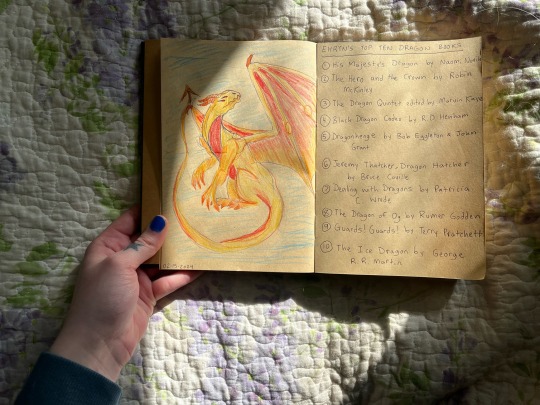 TOP TEN DRAGON BOOKS
① His Majesty's Dragon by Naomi Novik
② The Hero and the Crown by Robin
McKinley
③ The Dragon Quintet edited by Marvin Kaye
④ Black Dragon Codex by R.D. Henham
⑤ Dragonhenge by Bob Eggleton & John
Grant
⑥ Jeremy Thatcher, Dragon Hatcher
by Bruce Coville
⑦ Dealing with Dragons by Patricia
C. Wrede
⑧ The Dragon of Og by Rumer Godden
⑨ Guards! Guards! by Terry Pratchett
⑩ The Ice Dragon by George
R.R. Martin